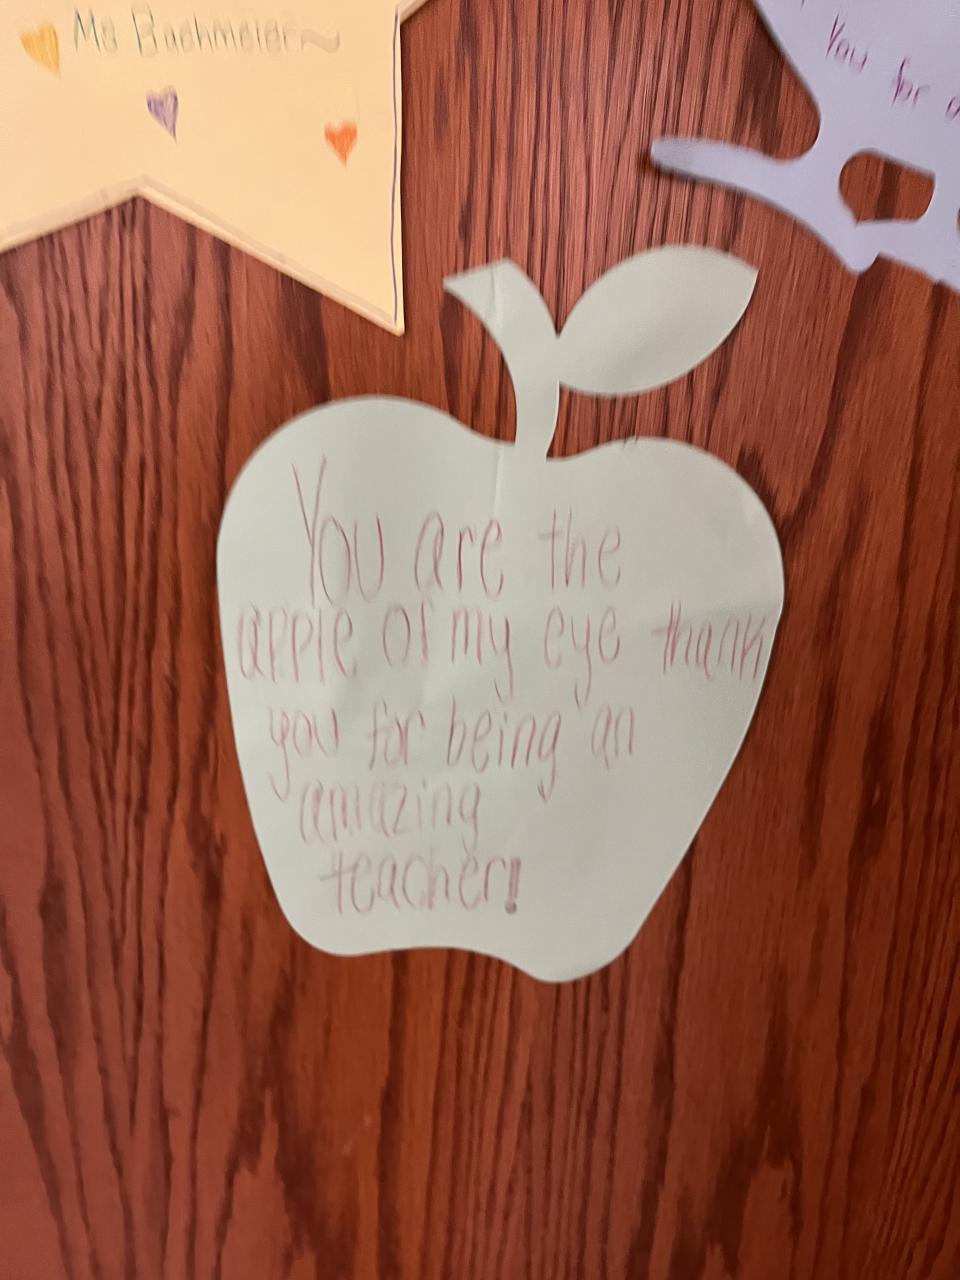 Ms Bachmeier
You for a
You are the
apple of my eye thank
you for being an
amazing
teacher!